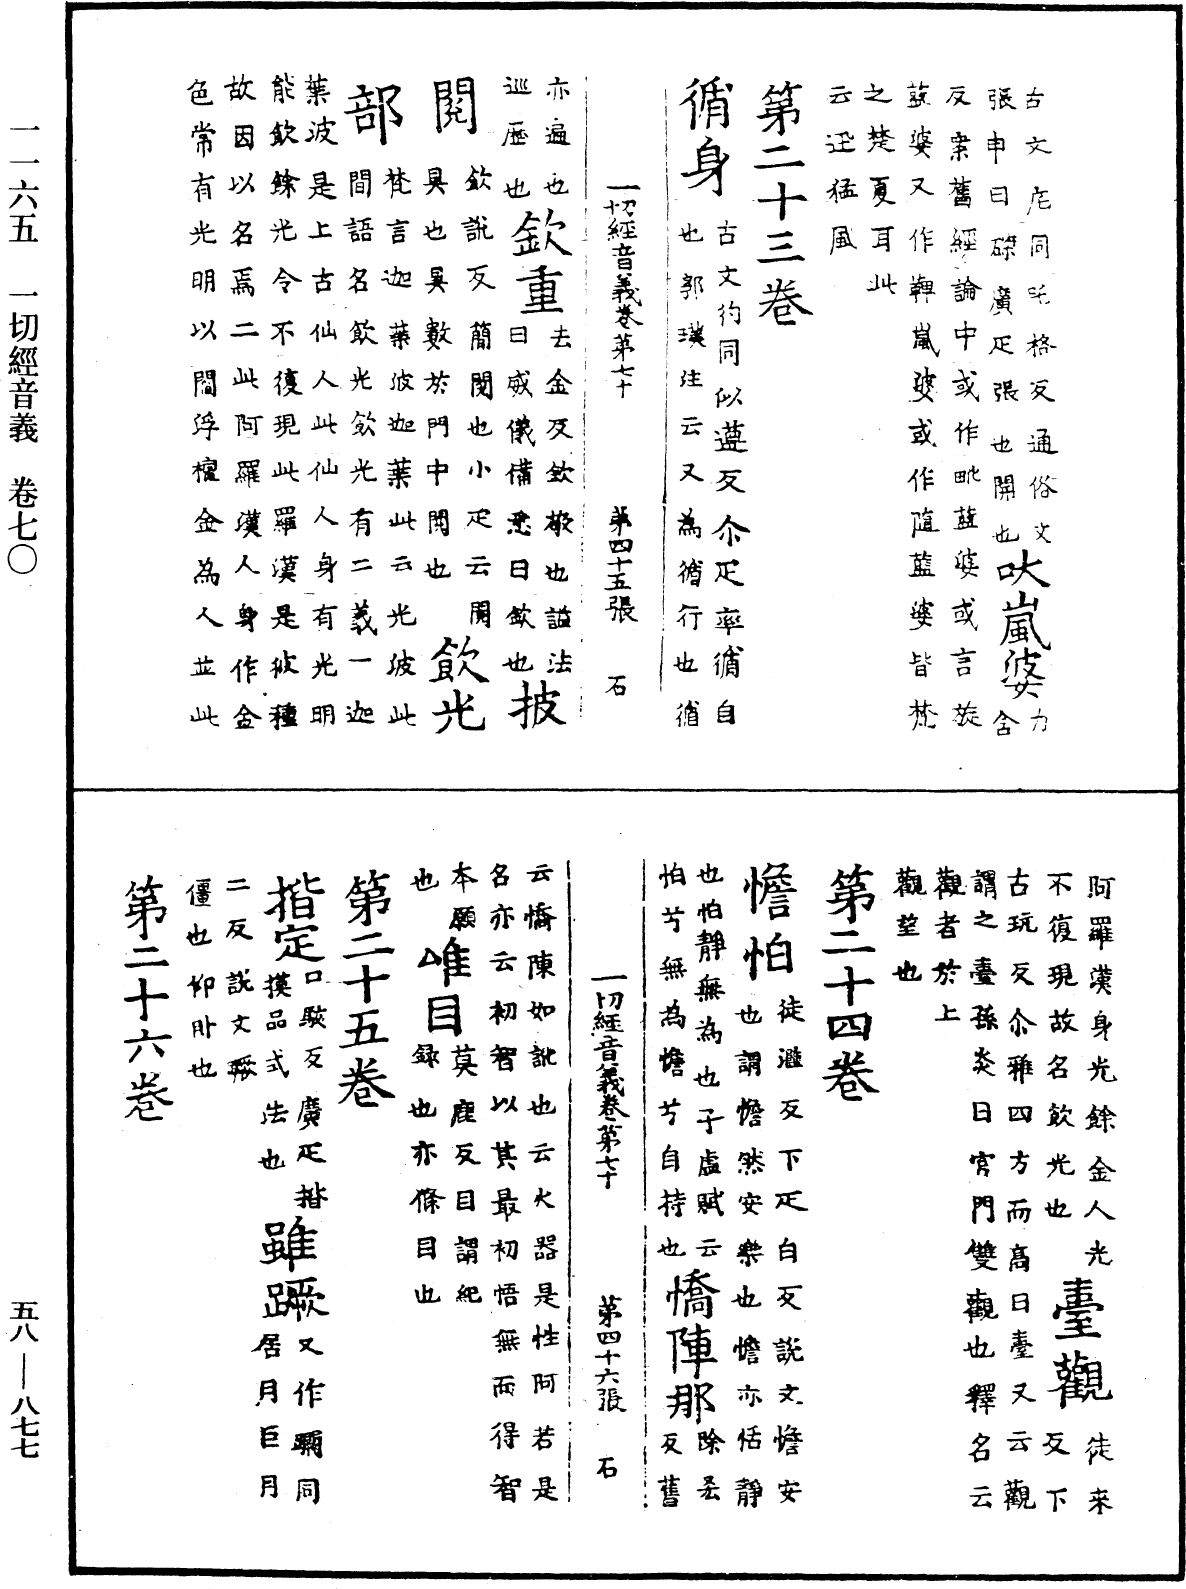 古文㡯同𠮟格反通俗文
張申曰磔廣疋張也開也 吠嵐婆 力含
反案舊經論中或作毗藍婆或言旋
藍婆又作鞞嵐婆或作隨藍婆皆梵
之楚夏耳此
云迅猛風
第二十三卷
循身 古文㣙同似遵反尒疋率循自
也郭璞注云又為循行也循
一切經音義卷第七十 第四十五張 石
亦遍也
巡歷也 欽重 去金反欽敬也謚法
曰威儀備悉曰欽也 披
閱 欽說反簡閱也小疋云閱
具也具數於門中閱也 飲光
部 梵言迦葉波迦葉此云光波此
間語名飲光飲光有二義一迦
葉波是上古仙人此仙人身有光明
能飲餘光令不復現此羅漢是彼種
故因以名焉二此阿羅漢人身作金
色常有光明以閻浮檀金為人並此
阿羅漢身光餘金人光
不復現故名飲光也 臺觀 徒來反下
古玩反尒雅四方而高曰臺又云觀
謂之臺孫炎曰宮門雙觀也釋名云
觀者於上
觀望也
第二十四卷
憺怕 徒濫反下疋白反說文憺安
也謂憺然安樂也憺亦恬靜
也怕靜無為也子虛賦云
怕兮無為憺兮自持也 憍陣那 除刃反舊
一切經音義卷第七十 第四十六張 石
云憍陳如訛也云火器是性阿若是
名亦云初智以其最初悟無而得智
本願
也 唯目 莫鹿反目謂紀
録也亦條目也
第二十五卷
揩定 口駭反廣疋揩
摸品式法也 雖蹶 又作𨇮同
居月巨月
二反說文蹶
僵也仰卧也
第二十六卷
一一六五 一切經音義 卷七〇
五八—八七七